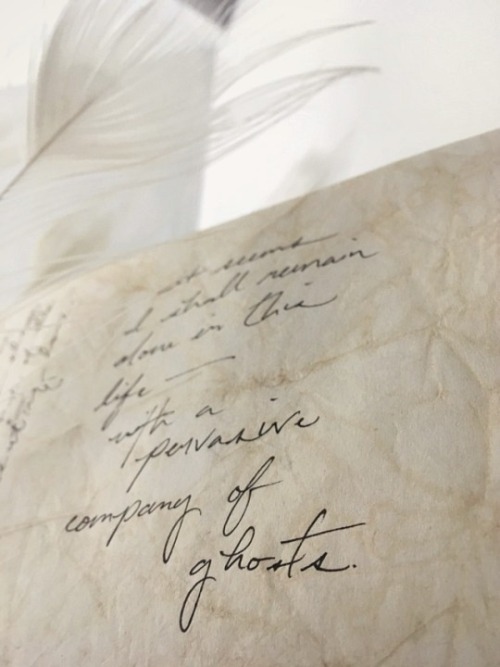 it seems
I shall remain
alone in this
life —
with a
pervasive
company of
ghosts.